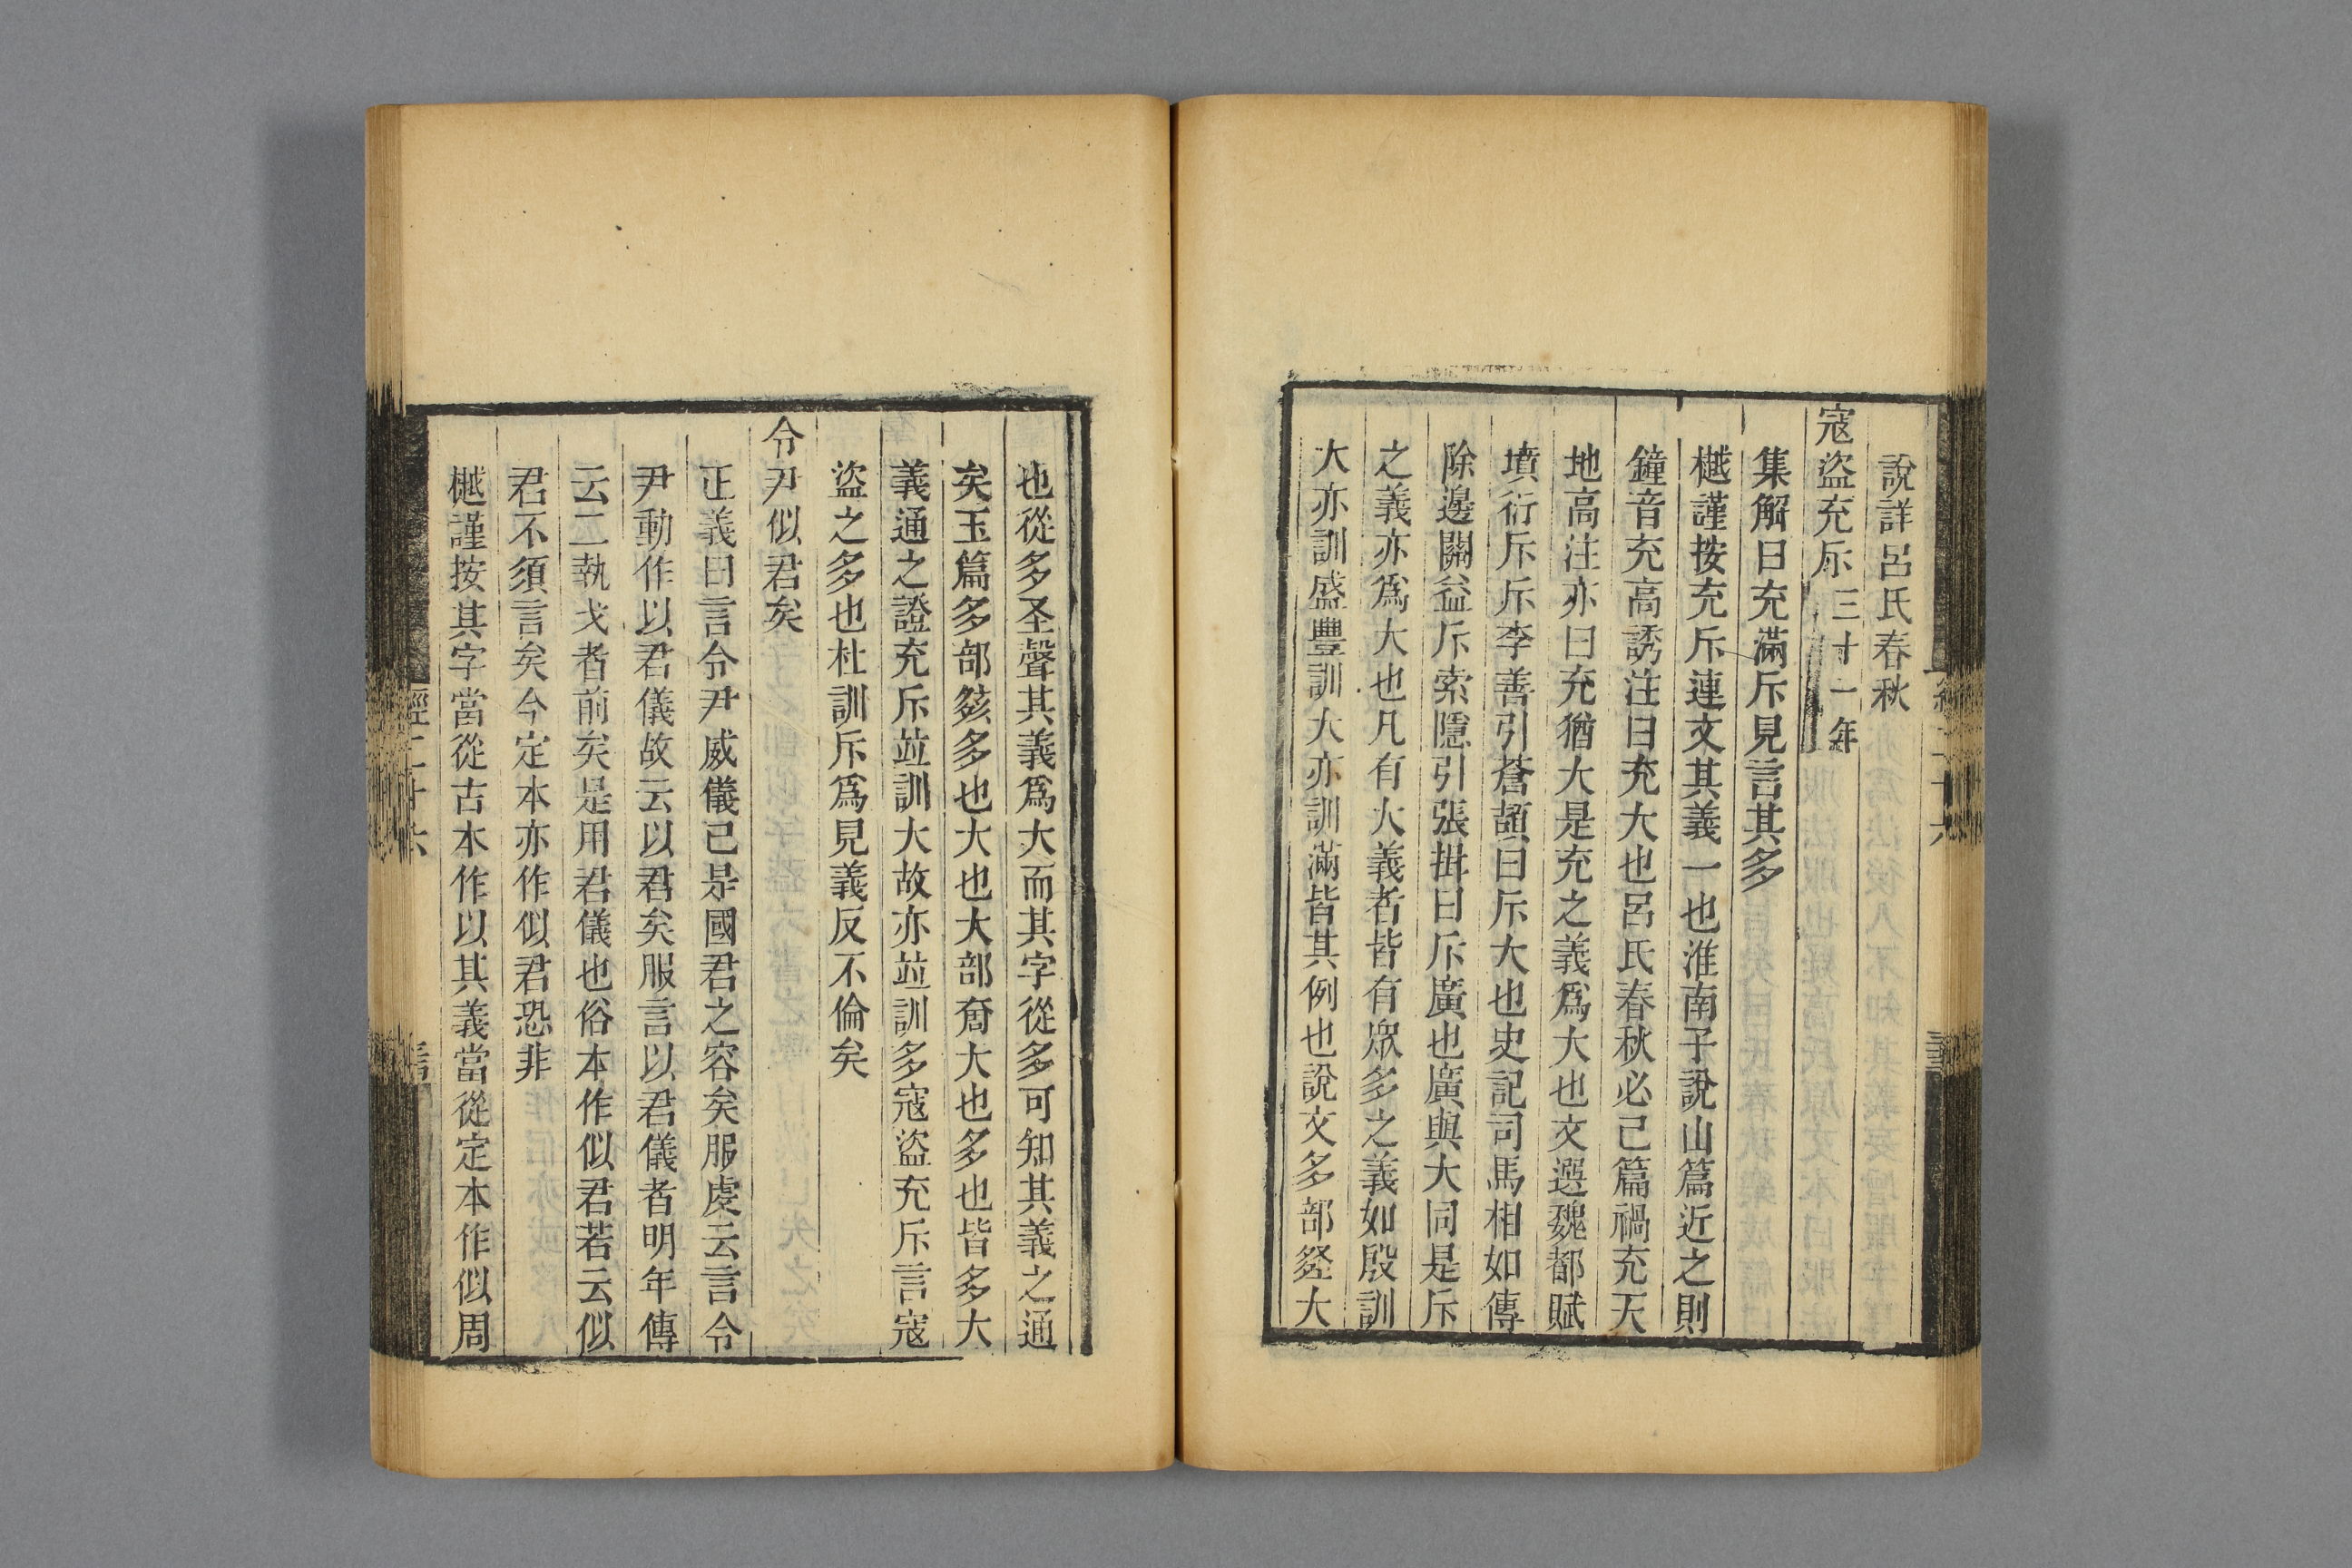 說詳呂氏春秋
寇盜充斥三十一年
集解曰充滿斥見言其多
樾謹按充斥連文其義一也淮南子說山篇近之則
鐘音充高誘注曰充大也呂氏春秋必己篇禍充天
地高注亦曰充猶大是充之義爲大也文選魏都賦
墳衍斥斥李善引蒼頡曰斥大也史記司馬相如傳
除邊關益斥索隱引張揖曰斥廣也廣與大同是斥
之義亦爲大也凡有大義者皆有眾多之義如殷訓
大亦訓盛豐訓大亦訓滿皆其例也說文多部㚇大
也從多圣聲其義爲大而其字從多可知其義之通
矣玉篇多部㚊多也大也大部奝大也多也皆多大
義通之證充斥竝訓大故亦竝訓多寇盜充斥言寇
盜之多也杜訓斥爲見義反不倫矣
令尹似君矣
正義曰言令尹威儀已是國君之容矣服虔云言令
尹動作以君儀故云以君矣服言以君儀者明年傳
云二執戈者前矣是用君儀也俗本作似君若云似
君不須言矣今定本亦作似君恐非
樾謹按其字當從古本作以其義當從定本作似周
經二十六